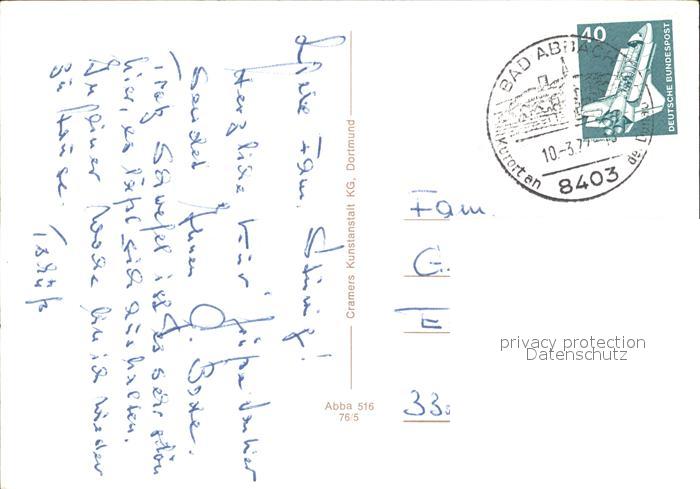 Liebe Fam. Stüwig!
Herzliche Kur grüße von hier
sendet Ihnen G. Bode.
Trotz Schwefel ist es sehr schön
hier, es läßt sich aushalten.
In einer Woche bin ich wieder
zu Hause.
Tschüß
Cramers Kunstanstalt KG., Dortmund
Abba 516
76/5
40
DEUTSCHE BUNDESPOST
BAD ABBACH
10.-3.77
8403
Kurort an der Donau
Fam.
G.
E
33
privacy protection
Datenschutz